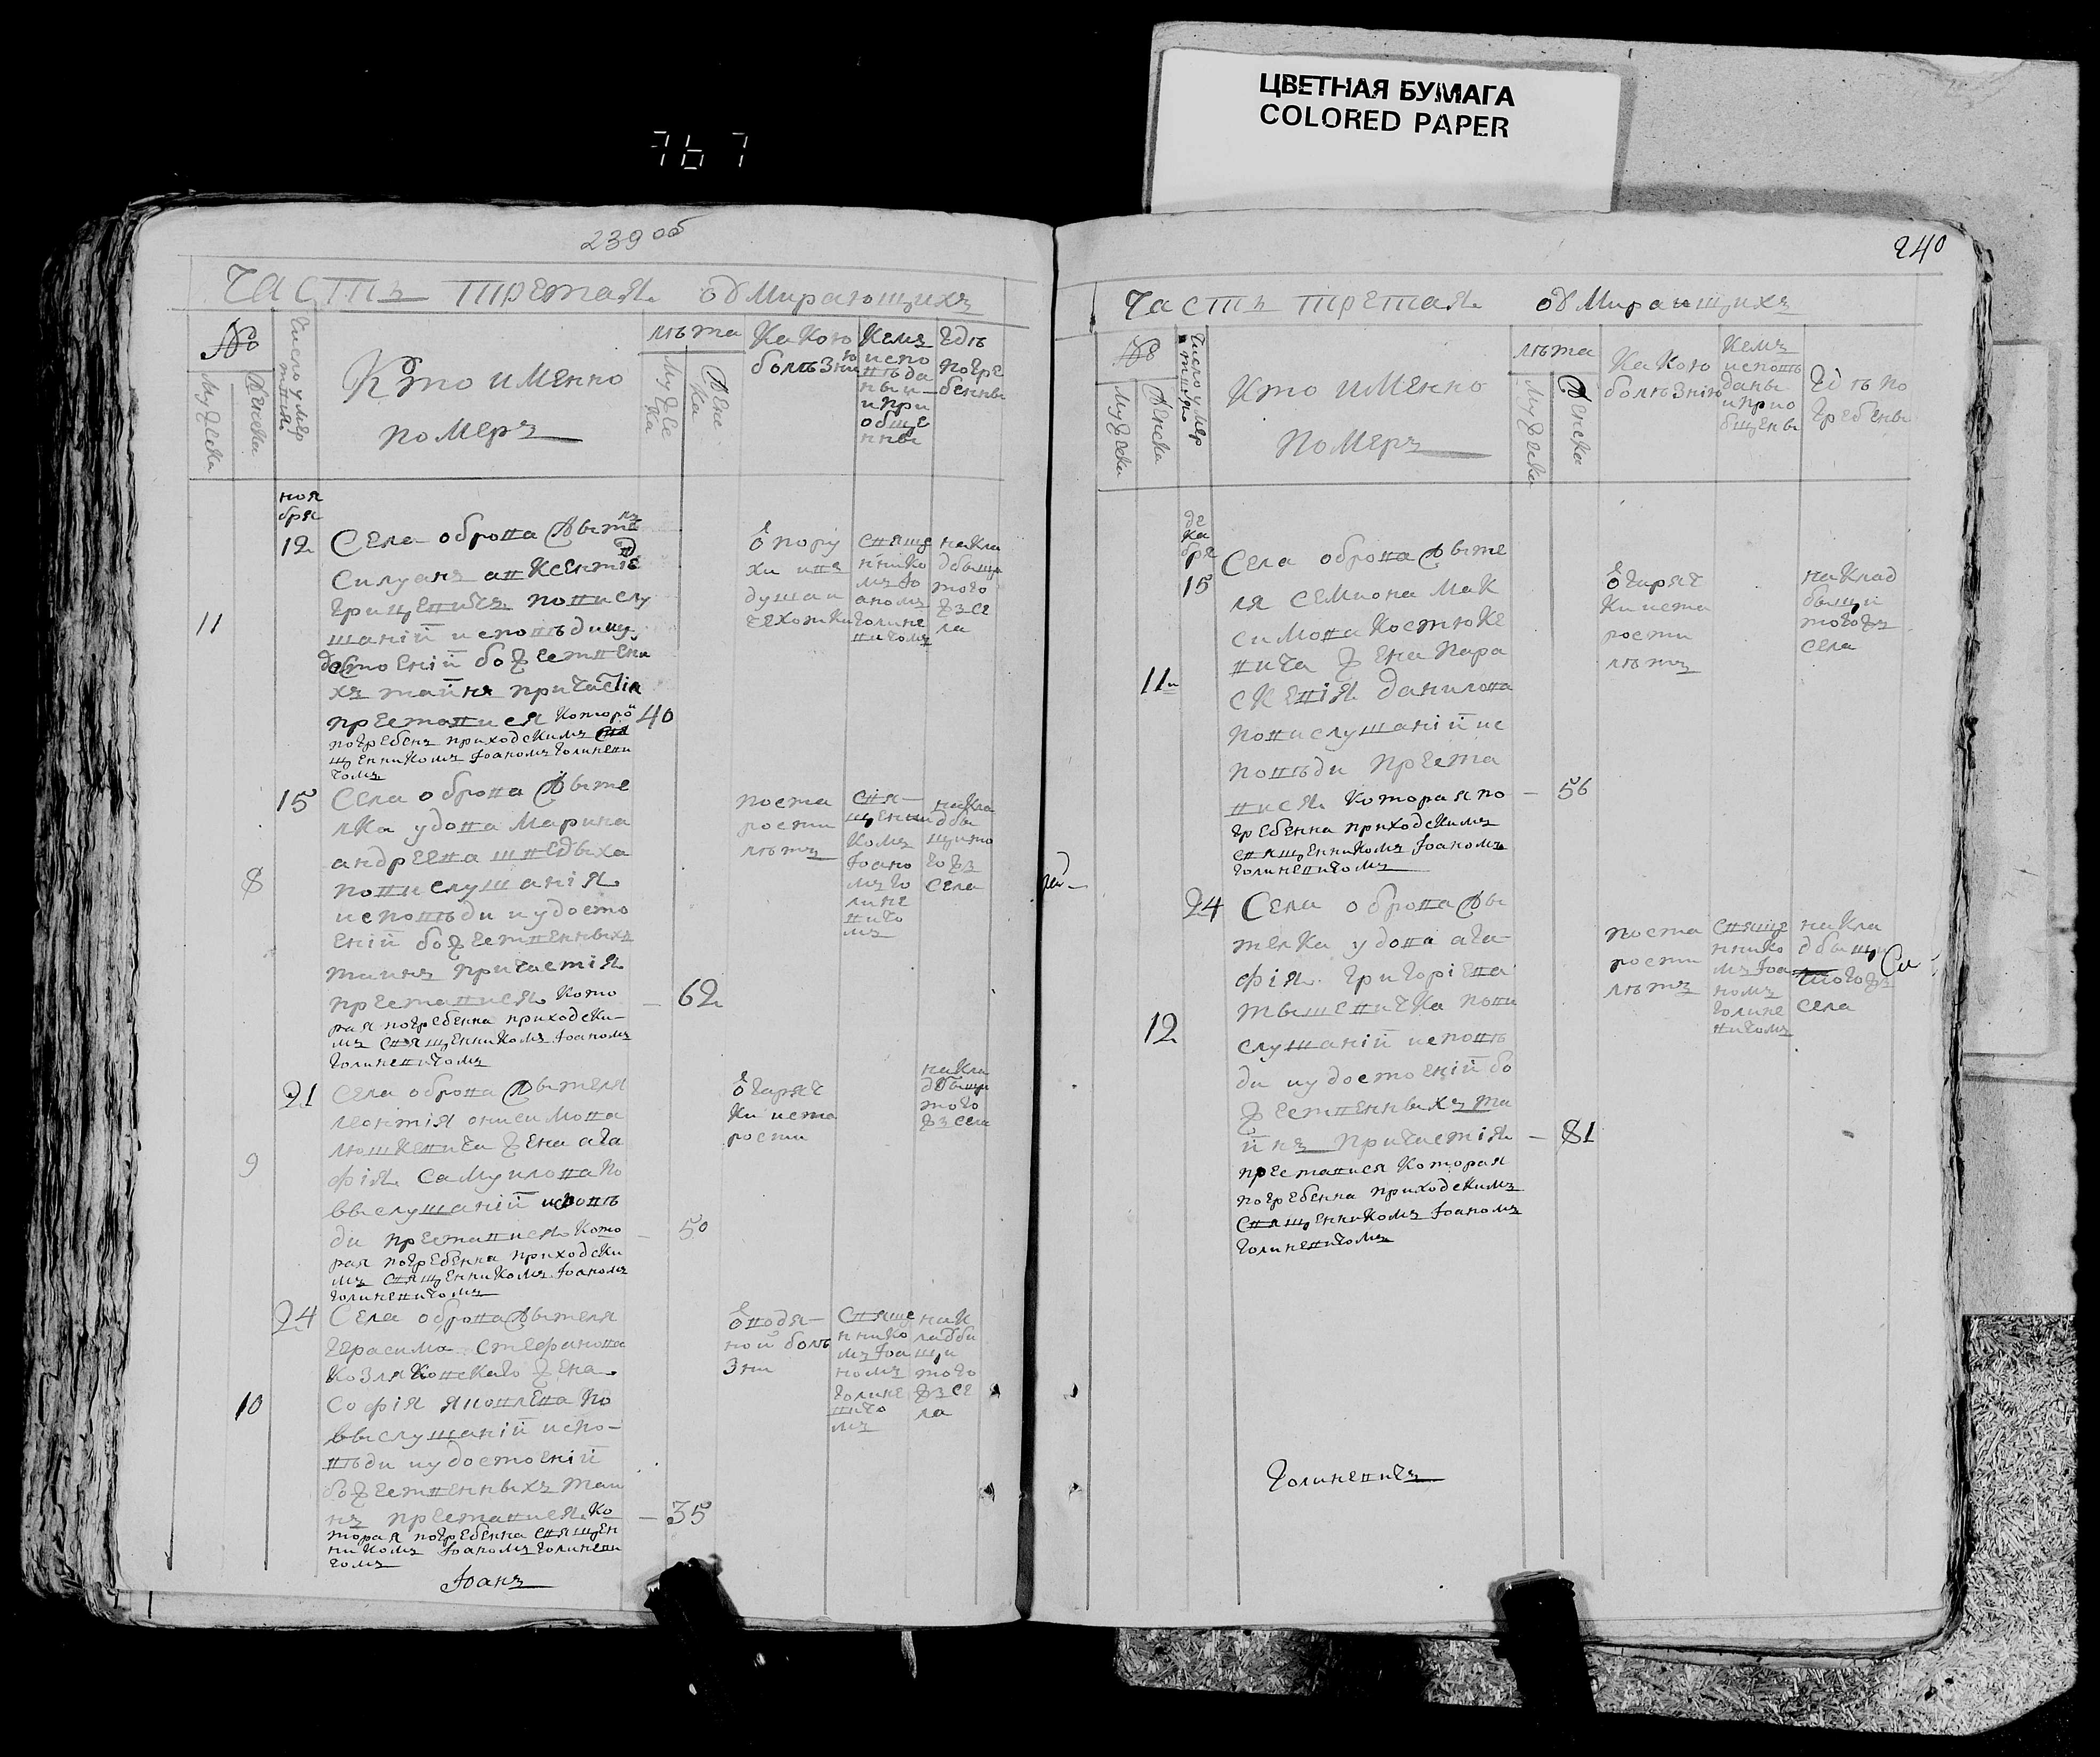 ЦВЕТНАЯ БУМАГА
COLORED PAPER
767
239 об
Часть третая обмирающихъ
№
Мужеска
Женска
Число умертвія
Кто именно
померъ
лѣта
Мужеска
Женска
Какою
болѣзнію
Кемъ
испо
вѣда
ны и
и при
обще
нны
Гдѣ
погре
бенны
ноя
бря
12
11
Села оброва жытель
Силуанъ авксентіев
Грицевичъ по выслу
шаній исповѣди и у
достоеній божественны
хъ тайнъ причастія
преставися которой
погребенъ приходскимъ свя
щенникомъ Іоаномъ Голиневи
чомъ
40
священнико
мъ Іо
аномъ
Голине
вичомъ
на кла
дбыщи
того
жъ се
ла
15
8
Села оброва жыте
лка удова Марина
андреева шведыха
по выслушанія
исповѣди и удосто
еній божественныхъ
таинъ причастія
преставися кото
рая погребенна приходски
мъ священникомъ Іоаномъ
Голиневичомъ
62
по ста
рости
лѣтъ
свя
щенни
комъ
Іоано
мъ Го
лине
вичо
мъ
на кла
дбы
щи то
гожъ
села
21
9
Села оброва жытеля
леонтія онисимова
люшкевича жена ага
фія Самуилова по
выслушаній исповѣ
ди преставися кото
рая погребенна приходски
мъ священникомъ Іоаномъ
Голиневичомъ
50
Ѿ гаряч
ки и ста
рости
на кла
дбыщи
того
жъ села
24
10
Села оброва жытеля
Герасима Стефанова
козляковскаго жена
Софія яковлева по
выслушаній испо
вѣди и удостоеній
божественныхъ таи
нъ преставися ко
торая погребенна священ
никомъ Іоаномъ Голиневи
чомъ
35
Ѿ водя
ной болѣ
зни
священнико
мъ Іоа
номъ
Голине
вичо
мъ
на к
ладбы
щи
того
жъ се
ла
Іоанъ
240
Часть третая обмирающихъ
№
Мужеска
Женска
Кто именно
померъ
лѣта
Мужеска
Женска
Какою
болѣзнію
Кемъ
исповѣ
даны
и прио
бщены
Гдѣ по
гребены
де
ка
бря
15
11
Села оброва жыте
ля Семиона Мак
симова Костюке
вича жена Пара
скевія данилова
по выслушаній ис
повѣди преста
вися которая по
гребенна приходскимъ
священникомъ Іоаномъ
Голиневичомъ
56
Ѿ гаряч
ки и ста
рости
лѣтъ
на клад
быщи
тогожъ
села
24
12
Села оброва жы
телка удова ага
фія григоріева
тышевичка по вы
слушаній исповѣ
ди и удостоеній бо
жественныхъ та
йнъ причастія
преставися которая
погребенна приходскимъ
священникомъ Іоаномъ
Голиневичомъ
81
по ста
рости
лѣтъ
свяще
ннико
мъ Іоа
номъ
Голине
вичомъ
на кла
дбыщи
тогожъ
села
Голиневичъ